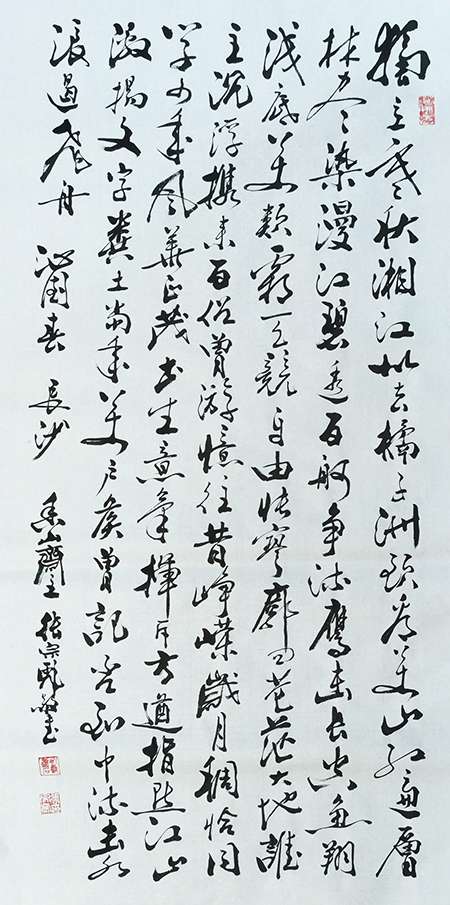 獨立寒秋湘江北去橘子洲頭看萬山紅遍層
林盡染漫江碧透百舸爭流鷹擊長空魚翔
淺底萬類霜天競自由悵寥廓問蒼茫大地誰
主沉浮攜來百侶曾游憶往昔崢嶸歲月稠恰同
學少年風華正茂書生意氣揮斥方遒指點江山
激揚文字糞土當年萬戶侯曾記否到中流擊水
浪遏飛舟 沁園春 長沙 齋主